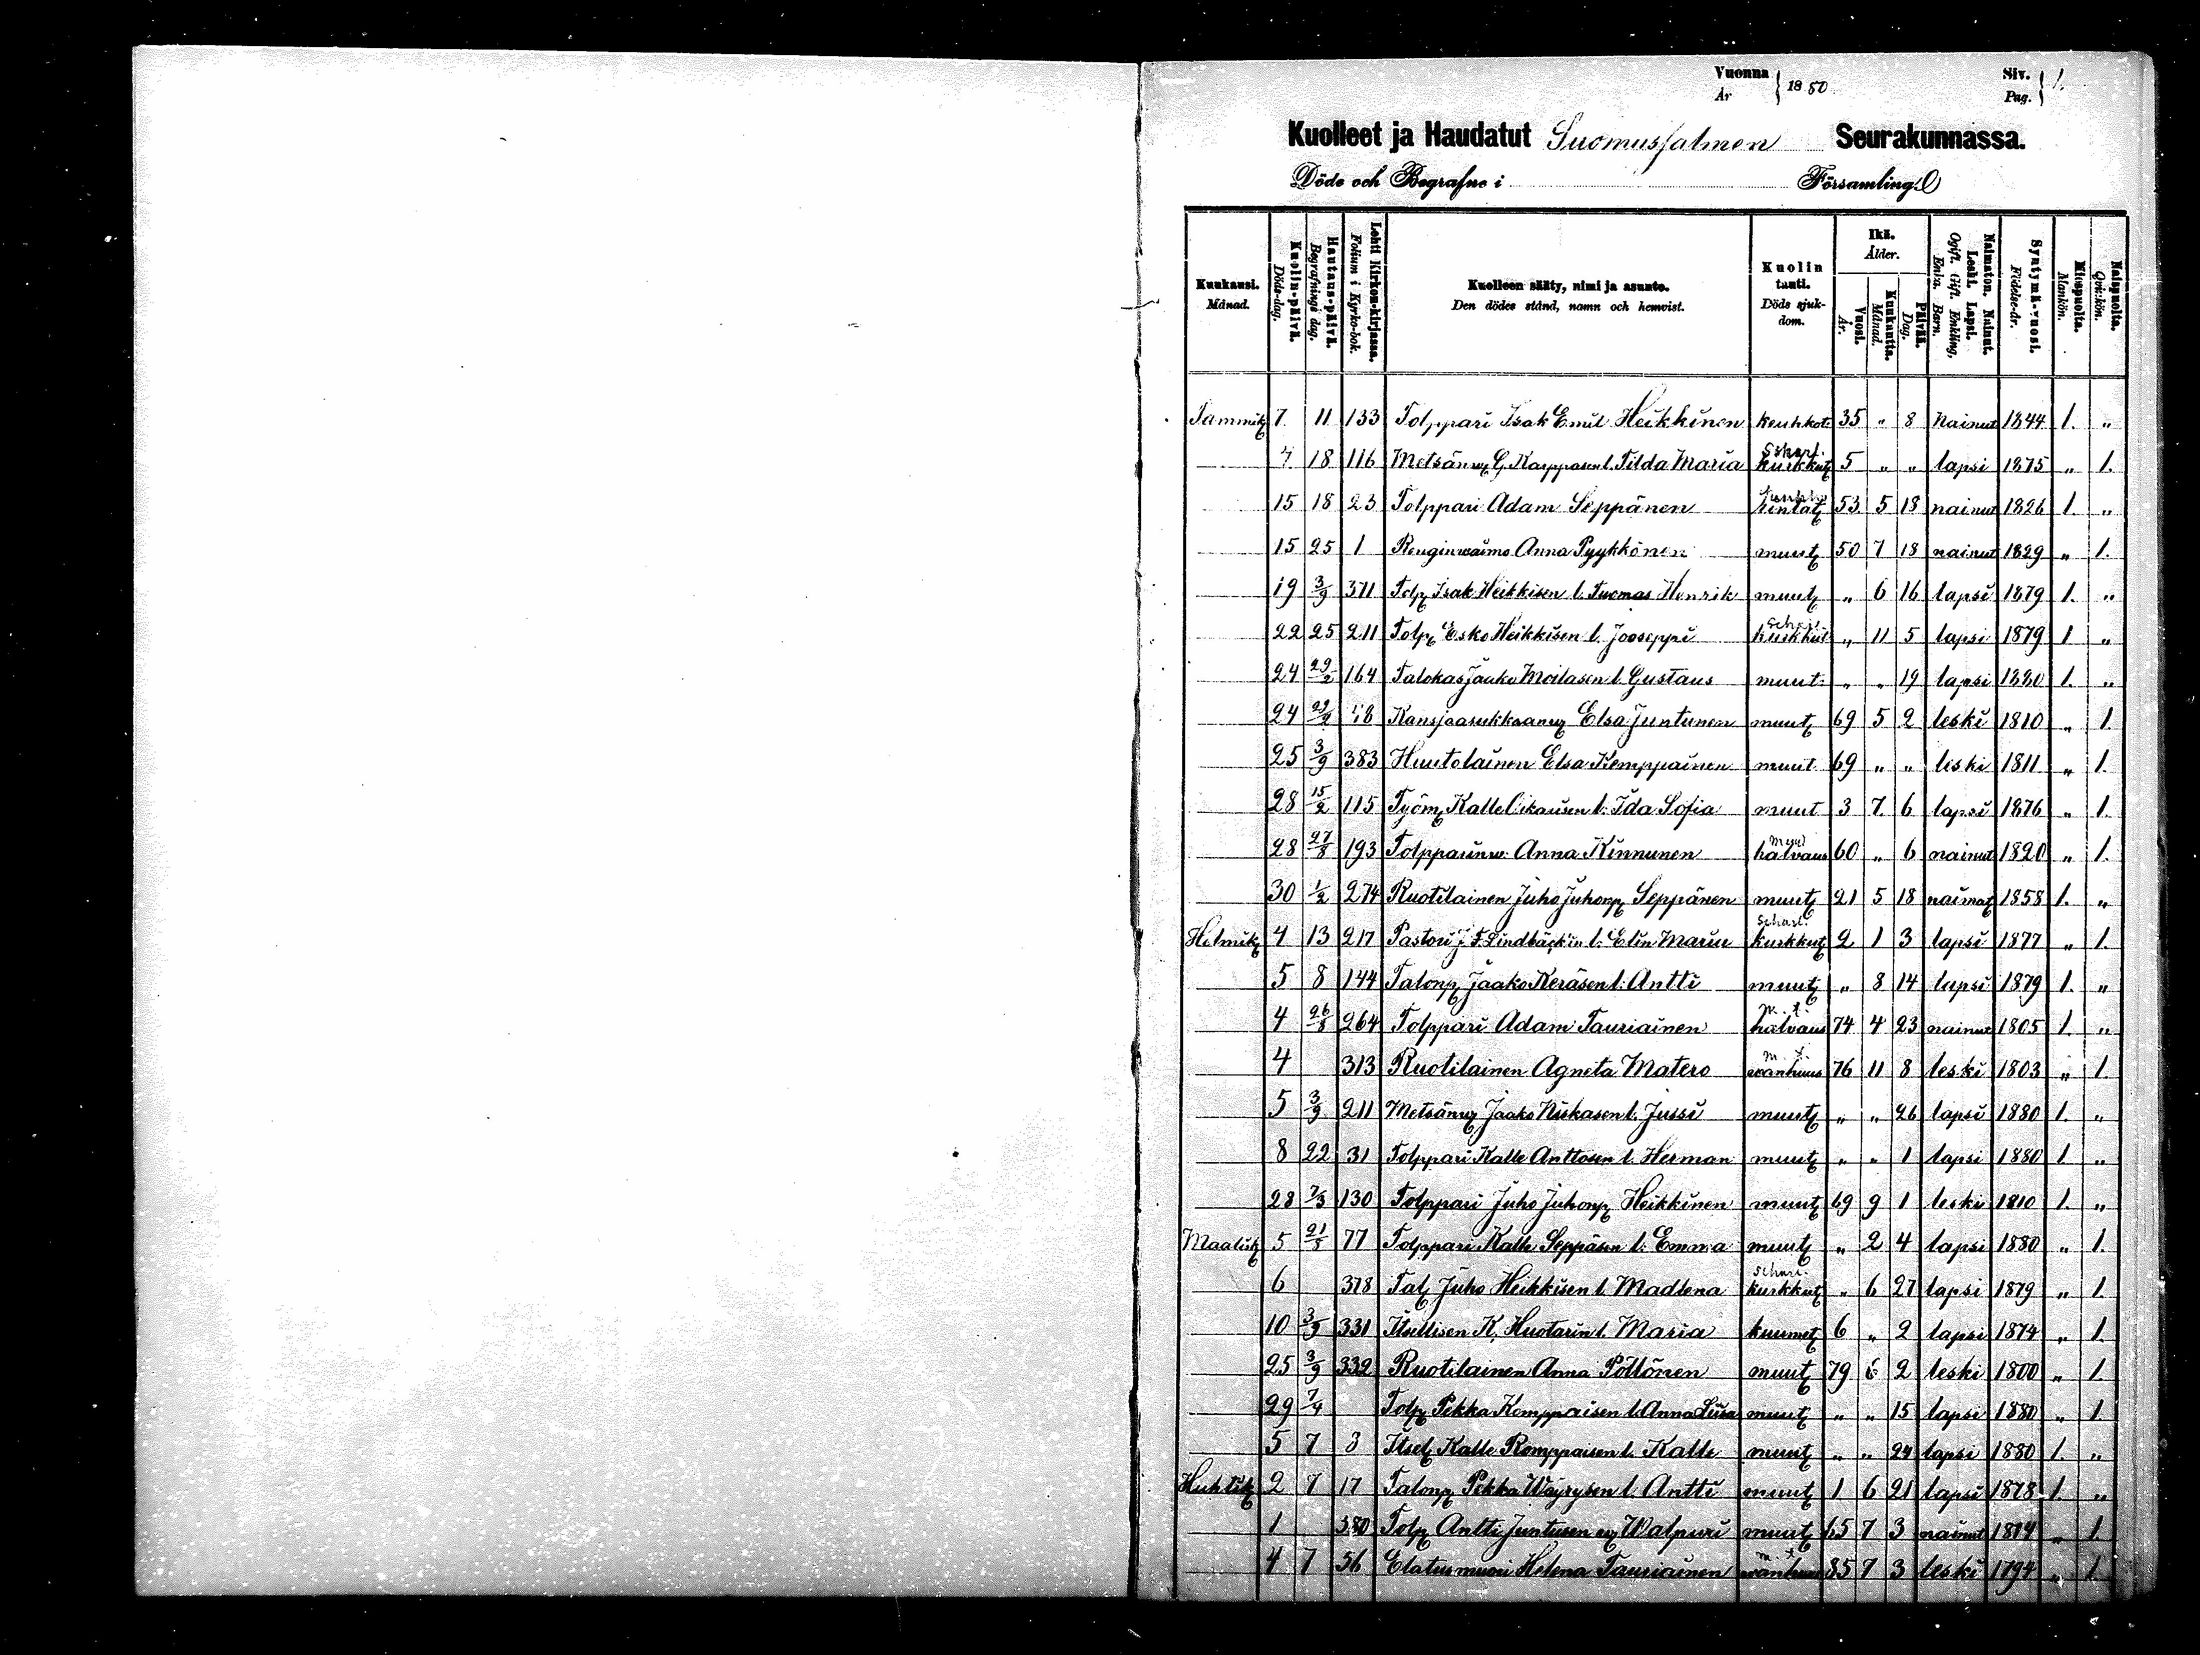 Vuonna 1880 Siv. 1.
År Pag.
Kuolleet ja Haudatut Suomussalmen Seurakunnassa.
Döde och Begrafne i Församling.
Kuukausi. Månad. Kuolin-päivä. Döds-dag. Hautaus-päivä. Begrafnings dag. Lehti Kirkon-kirjassa. Folium i Kyrko-bok. Kuolleen sääty, nimi ja asunto. Den dödes stånd, namn och hemvist. Kuolin tauti. Döds sjukdom. Ikä. Ålder. Vuosi. År. Kuukautta. Månad. Päivää. Dag. Naimaton. Nainut. Leski. Lapsi. Ogift. Gift. Enkling, Enka. Barn. Syntymä-vuosi. Födelse-år. Miespuolta. Mankön. Naispuolta. Qvinkön.
Tammik 7 11 133 Tolppari Isak Emil Heikkinen keuhkot 35 " 8 Nainut 1844 1. "
7 18 116 Metsänv G. Karppasen l. Tilda Maria kurkkut 5 " " lapsi 1875 " 1.
15 18 23 Tolppari Adam Seppänen 53 5 18 nainut 1826 1. "
15 25 1 Renginvaimo Anna Pyykkönen muut 50 7 18 nainut 1829 " 1.
19 3/9 371 Tolp Isak Heikkisen l. Tuomas Henrik muut " 6 16 lapsi 1879 1. "
22 25 211 Tolp Esko Heikkisen l. Jooseppi kurkkut " 11 5 lapsi 1879 1 "
24 164 Talokas Jaako Moilasen l. Gustaus muut. " " 19 lapsi 1880 1. "
24 Elsa Juntunen muut 69 5 2 leski 1810 " 1.
25 3/9 383 Huutolainen Elsa Kemppainen muut 69 " " leski 1811 " 1.
28 15/2 115 Työm Kalle l. Ida Sofia muut 3 7 6 lapsi 1876 " 1.
28 27/8 193 Tolpparinw. Anna Kinnunen halvaus 60 " 6 nainut 1820 " 1.
30 1/2 274 Ruotilainen Juho Juhonp Seppänen muut 21 5 18 naimat 1858 1. "
Helmik 4 13 217 Pastori J. F. Lindbäckin l. Elin Maria schasl. kurkkut 2 1 3 lapsi 1877 " 1.
5 8 144 Talonp Jaako Keräsen l. Antti muut " 8 14 lapsi 1879 1. "
4 26/8 264 Tolppari Adam Tauriainen m. t. halvaus 74 4 23 nainut 1805 1. "
4 313 Ruotilainen Agneta Matero m. t. wanhuus 76 11 8 leski 1803 " 1.
5 3/9 211 Metsänv Jaako Kiskasen l. Jussi muut " " 26 lapsi 1880 1. "
8 22 31 Tolppari Kalle Anttosen l. Herman muut " " 1 lapsi 1880 1. "
28 7/3 130 Tolppari Juho Juhonp Heikkinen muut 69 9 1 leski 1810 1. "
Maalisk 5 21/5 77 Tolppari Kalle Seppäsen l. Emma muut " 2 4 lapsi 1880 " 1.
6 378 Tal Juho Heikkisen l. Madlena kurkkut " 6 27 lapsi 1879 " 1.
10 3/5 331 Itsellisen K. Huotarin l. Maria kuumet 6 " 2 lapsi 1874 " 1.
25 3/9 332 Ruotilainen Anna Pöllönen muut 79 6 2 leski 1800 " 1.
29 7/4 Tolp Pekka Kemppaisen l. Anna Liisa muut " " 15 lapsi 1880 " 1.
5 7 3 Itsel Kalle Romppaisen l. Kalle muut " " 24 lapsi 1880 1. "
Huhtik 2 7 17 Talonp Pekka Wäyrysen l. Antti muut 1 6 21 lapsi 1878 1. "
1 380 Tolp Antti Juntusen Walpuri muut 65 7 3 nainut 1814 " 1.
4 7 56 Elatusmuori Helena Tauriainen m. t. wanhuus 85 7 3 leski 1794 " 1.